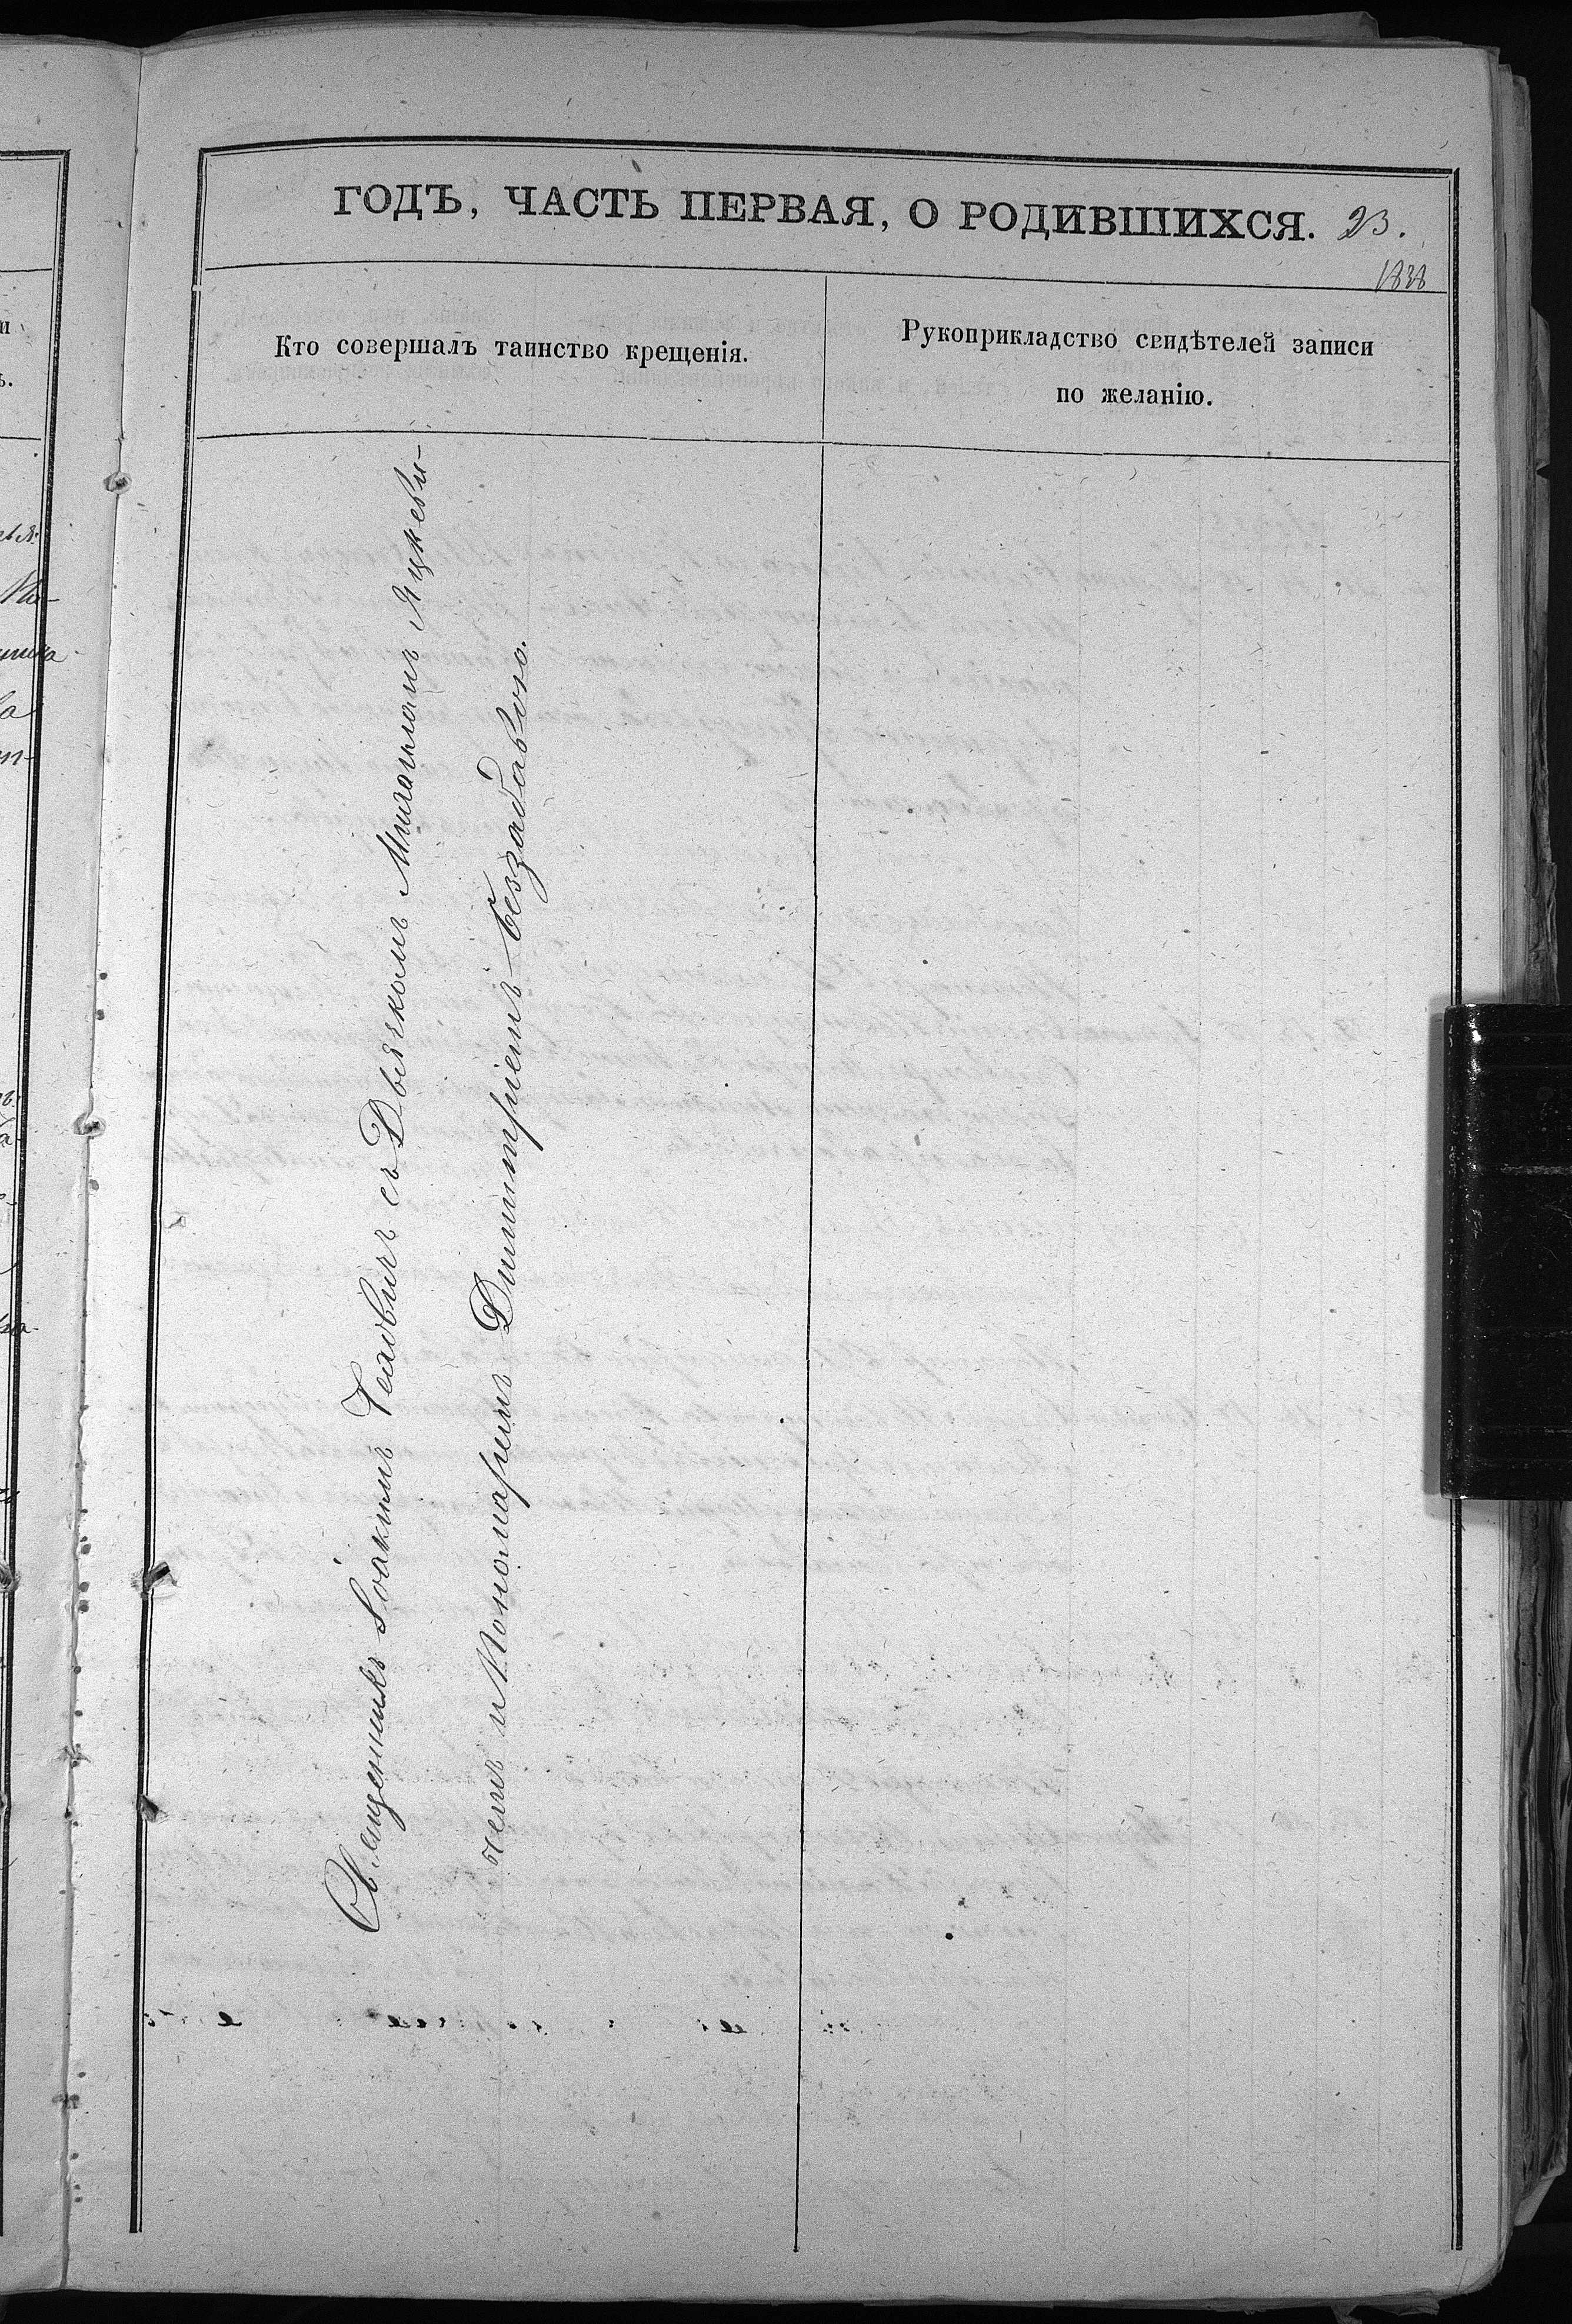 ГОДЪ, ЧАСТЬ ПЕРВАЯ, О РОДИВШИХСЯ. 23.
1838
Кто совершалъ таинство крещенія.
Рукоприкладство свидѣтелей записи
по желанію.
Священникъ Іоакимъ Теодовичъ съ Дьячкомъ Михаиломъ Яцкеви-
чемъ и Пономаремъ Димитріемъ Беззабавою.